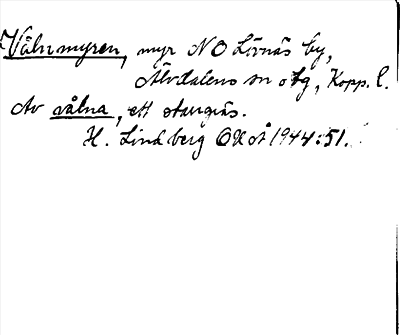 Vålnmyren, myr NO Livnäs by,
Älvdalens sn o tg, Kopp. l.
Av vålna, ett starrgräs.
H. Lindberg OUoÅ 1944:51.